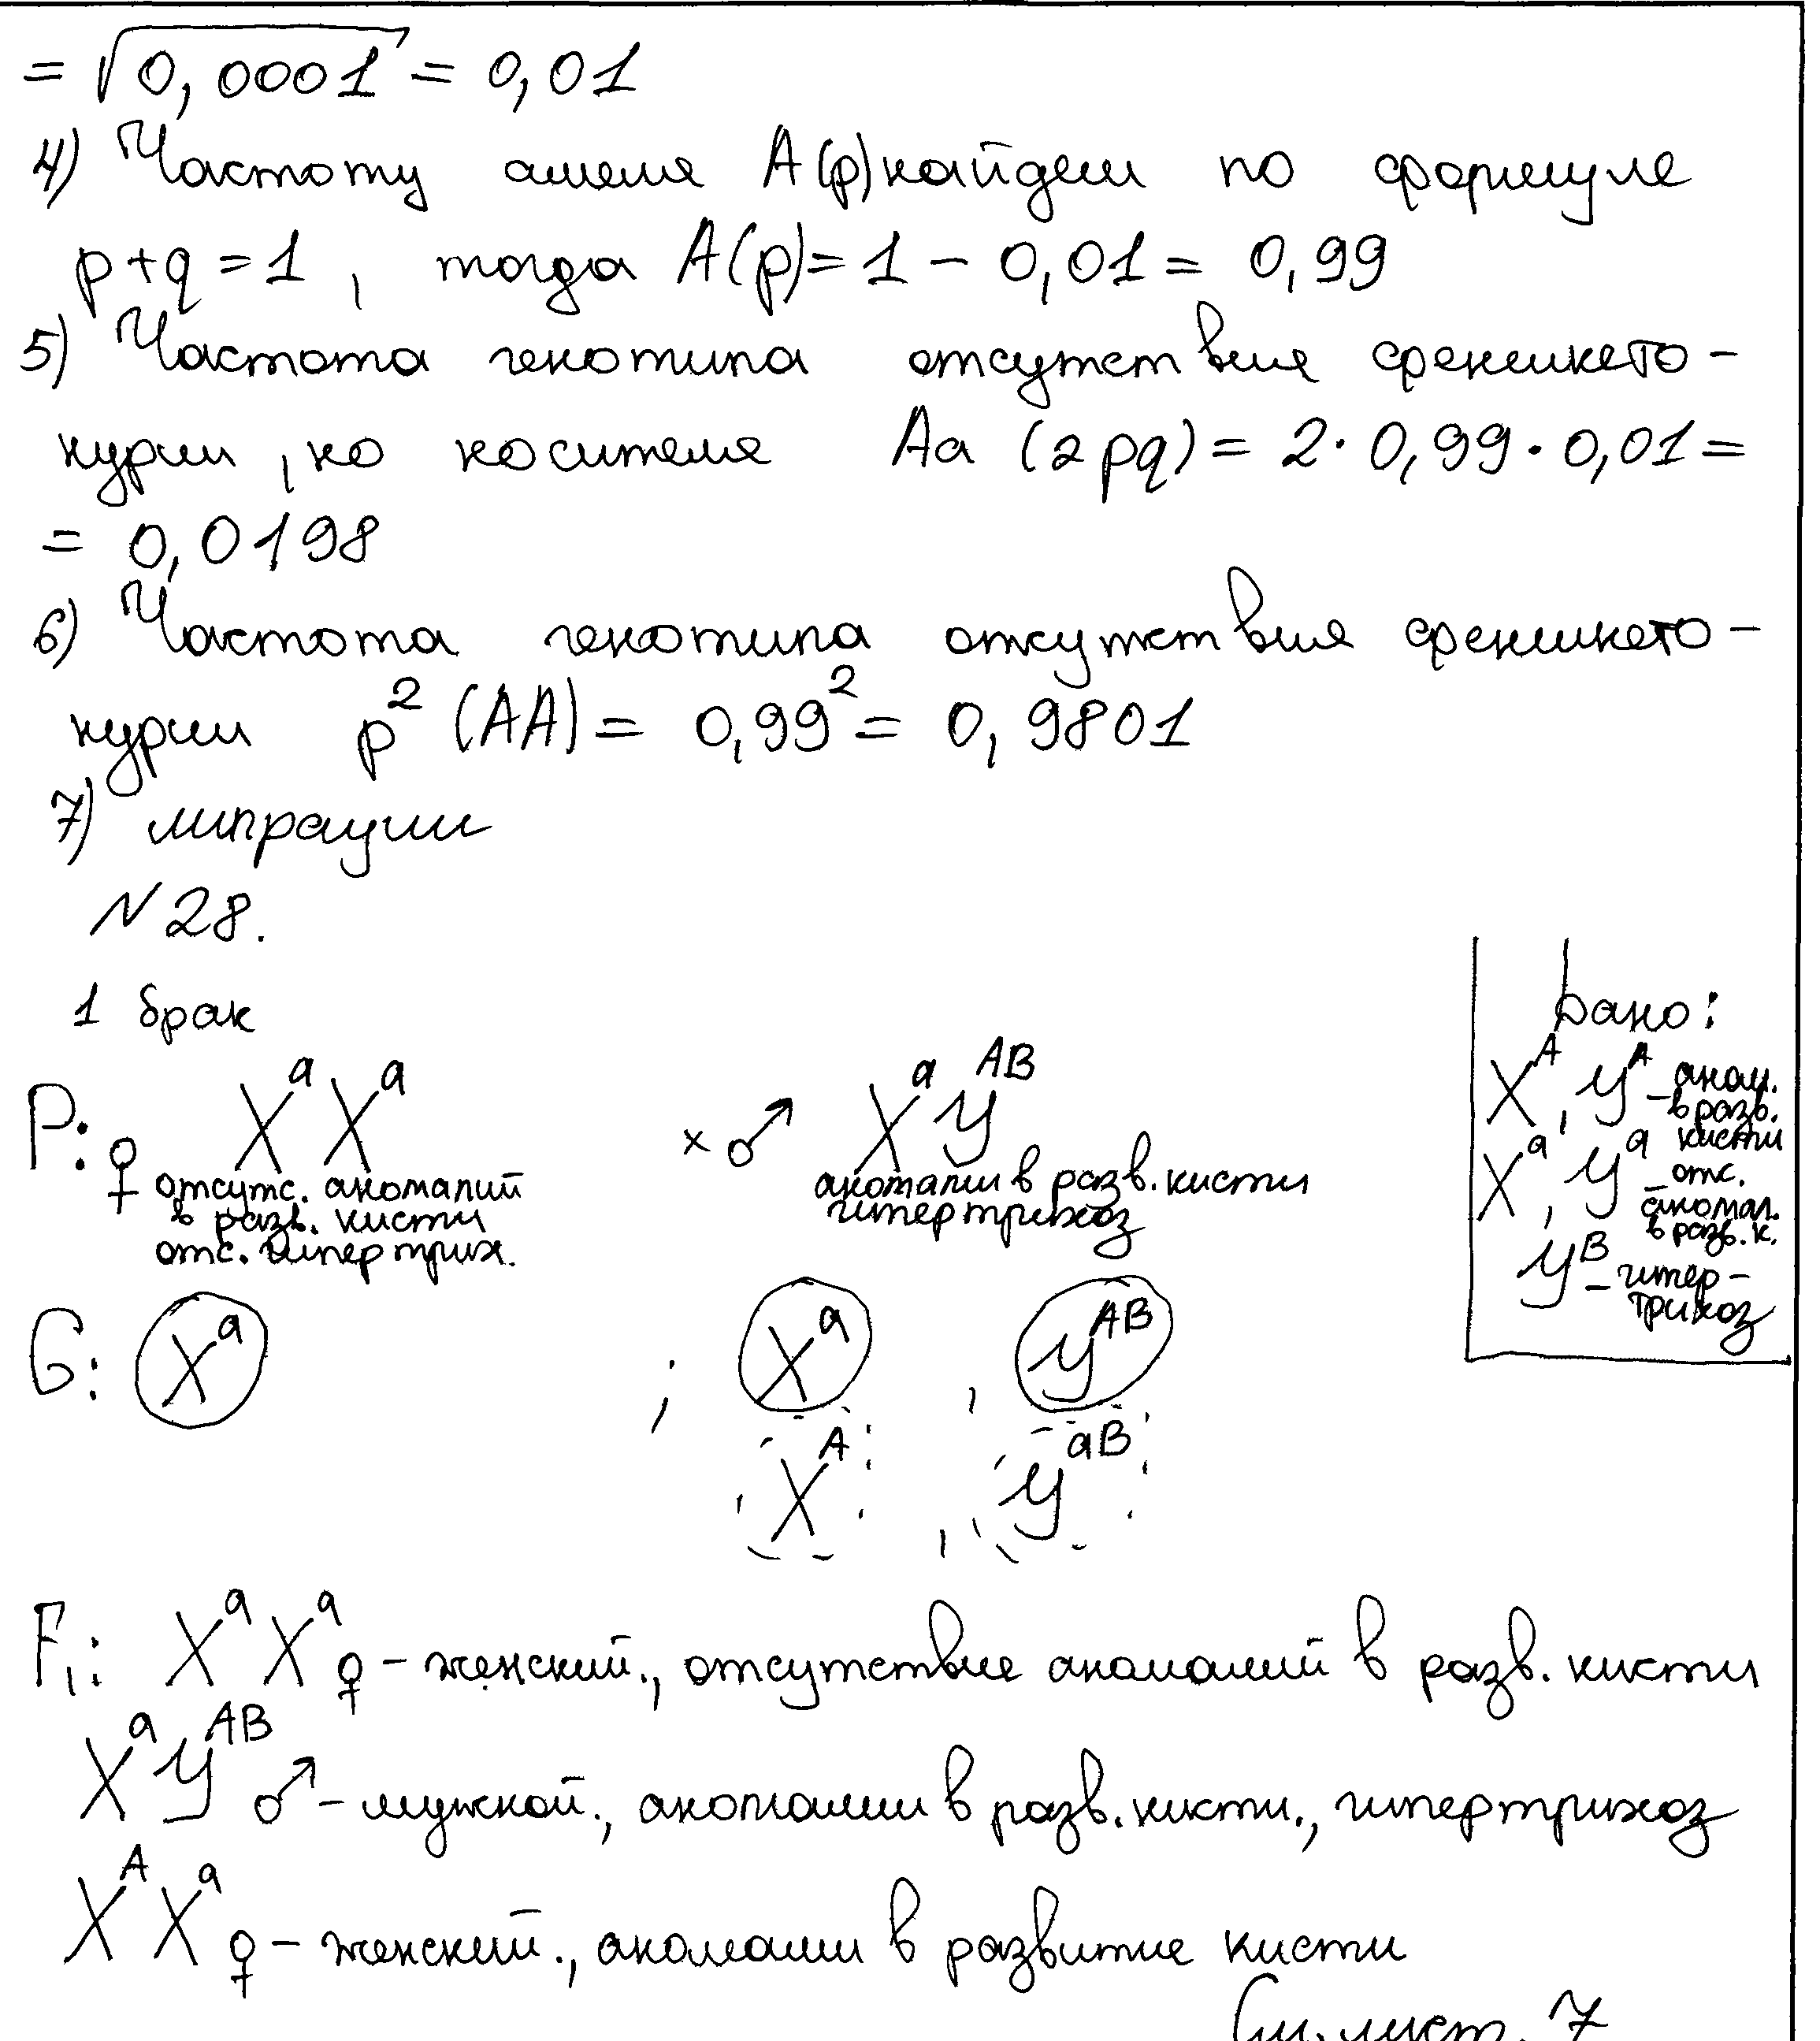 = √0,0001 = 0,01
4) Частоту аллеля A(p) найдем по формуле
p+q=1, тогда A(p)=1-0,01=0,99
5) Частота генотипа отсутствия фенилкето-
нурии, но носителя Aa (2pq)=2·0,99·0,01=
= 0,0198
6) Частота генотипа отсутствия фенилкето-
нурии p² (AA)= 0,99²= 0,9801
7) миграции
N28.
1 брак
Дано:
Xᴬ, Yᴬ - аном.
в разв.
кисти
Xᵃ, Yᵃ - отс.
аномал.
в разв. к.
Yᴮ - гипер-
трихоз
P: ♀ XᵃXᵃ × ♂ XᵃYᴬᴮ
отсутс. аномалий
в разв. кисти
отс. гипертрих.
аномалии в разв. кисти
гипертрихоз
G: Xᵃ ; Xᵃ , Yᴬᴮ
Xᴬ , Yᵃᴮ
F₁: XᵃXᵃ ♀ - женский., отсутствие аномалий в разв. кисти
XᵃYᴬᴮ ♂ - мужской., аномалии в разв. кисти., гипертрихоз
XᴬXᵃ ♀ - женский., аномалии в развитие кисти
См. лист. 7